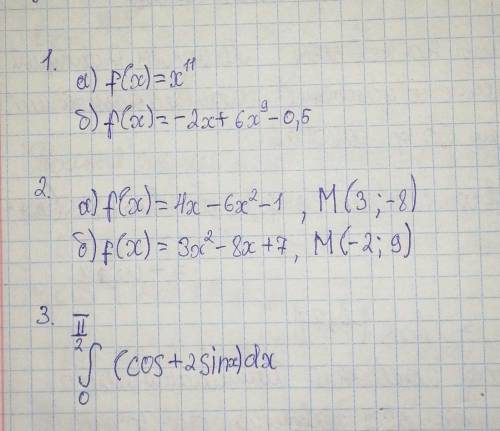 1.
а) f(x)=x¹¹
б) f(x)=-2x+6x⁹-0,5
2.
а) f(x)=4x-6x²-1, M(3;-8)
б) f(x)=3x²-8x+7, M(-2;9)
3.
π/2
∫ (cos+2sinx)dx
0